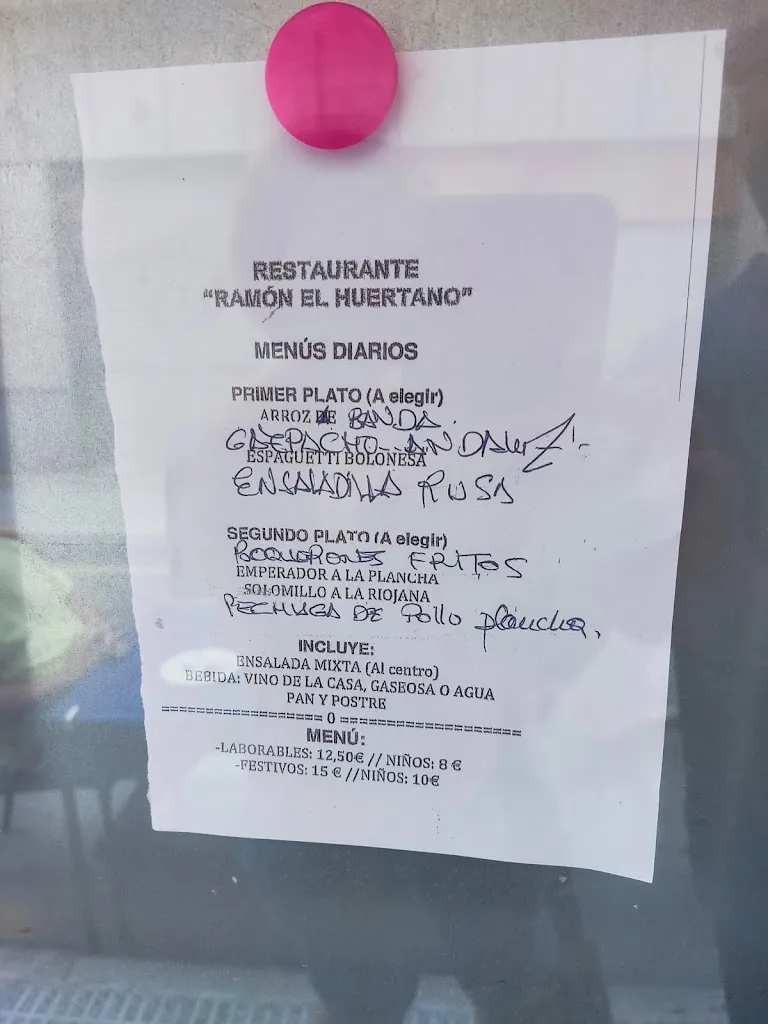 RESTAURANTE
“RAMÓN EL HUERTANO”
MENÚS DIARIOS
PRIMER PLATO (A elegir)
ARROZ A BANDA.
GAZPACHO ANDALUZ
ESPAGUETTI BOLONESA
ENSALADILLA RUSA
SEGUNDO PLATO (A elegir)
BOQUERONES FRITOS
EMPERADOR A LA PLANCHA
SOLOMILLO A LA RIOJANA
PECHUGA DE Pollo plancha.
INCLUYE:
ENSALADA MIXTA (Al centro)
BEBIDA: VINO DE LA CASA, GASEOSA O AGUA
PAN Y POSTRE
================= 0 ===================
MENÚ:
-LABORABLES: 12,50€ // NIÑOS: 8 €
-FESTIVOS: 15 € //NIÑOS: 10€